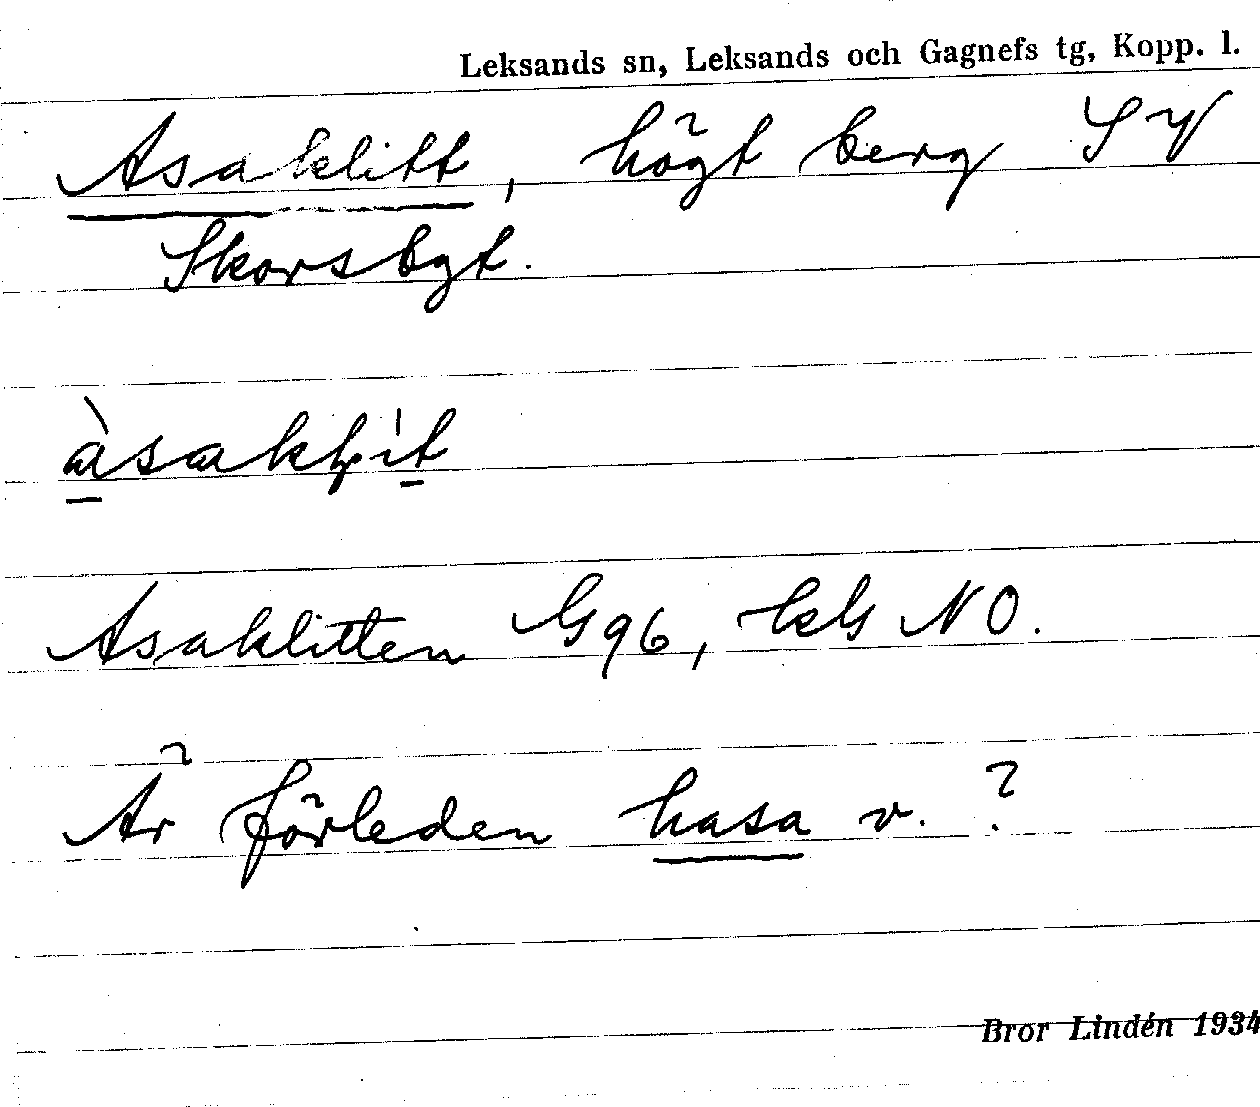 Leksands sn, Leksands och Gagnefs tg, Kopp. l.
Asaklitt, högt berg SV
Skorsbgt.
àsakḷit
Asaklitten G96, kls NO.
Är förleden hasa v. ?
Bror Lindén 1934